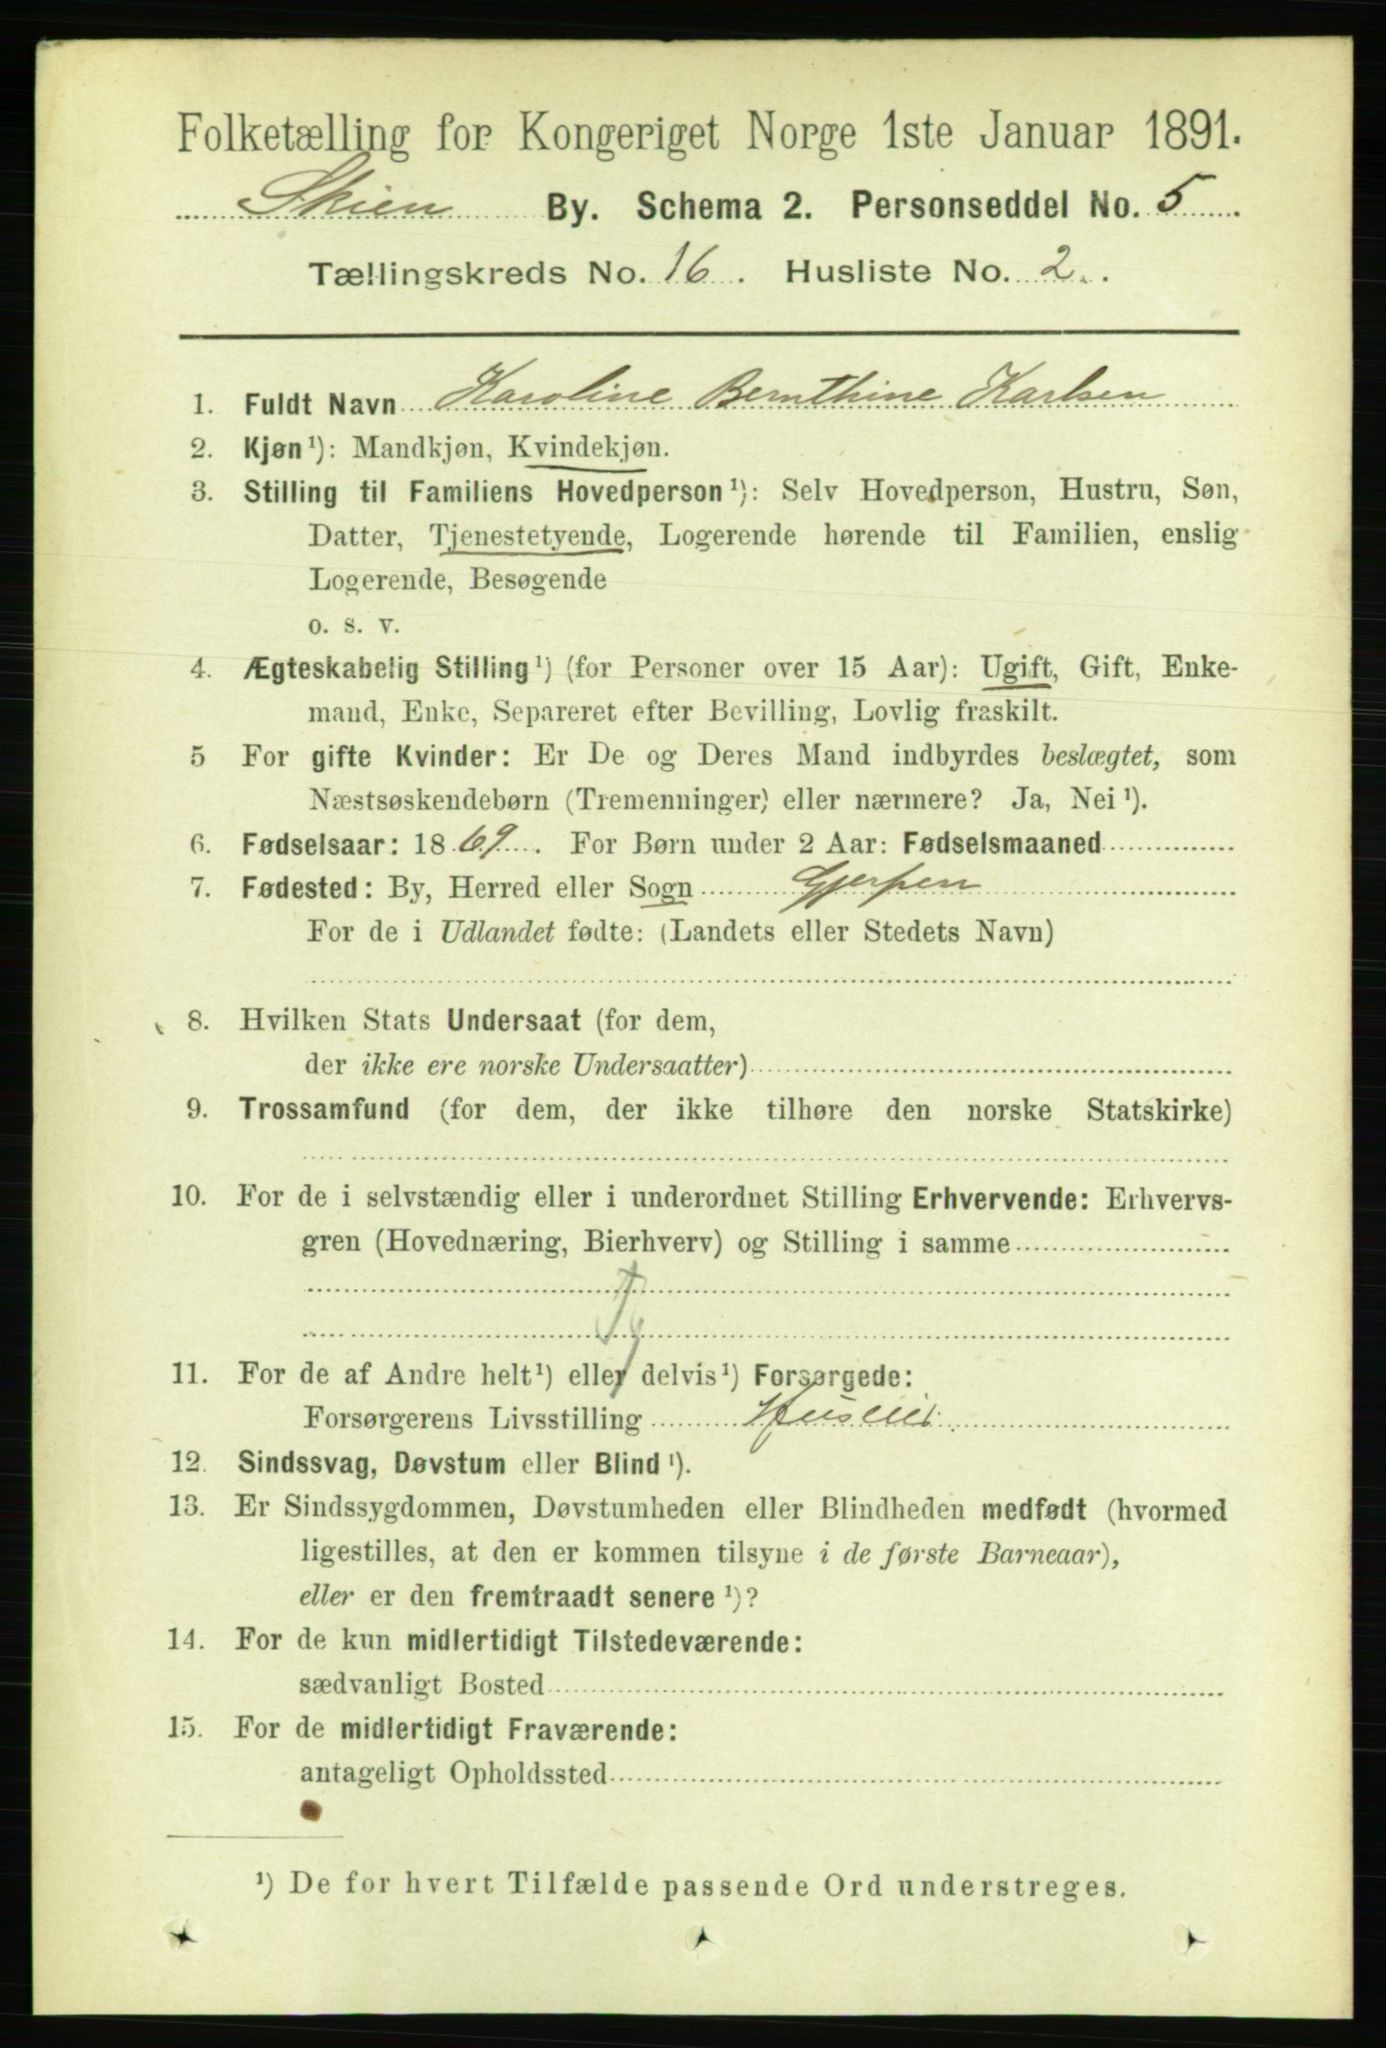 Folketælling for Kongeriget Norge 1ste Januar 1891.
Skien By. Schema 2. Personseddel No. 5
Tællingskreds No. 16. Husliste No. 2.
1. Fuldt Navn Karoline Bernthine Karlsen
2. Kjøn ¹): Mandkjøn, Kvindekjøn.
3. Stilling til Familiens Hovedperson ¹): Selv Hovedperson, Hustru, Søn,
Datter, Tjenestetyende, Logerende hørende til Familien, enslig
Logerende, Besøgende
o. s. v.
4. Ægteskabelig Stilling ¹) (for Personer over 15 Aar): Ugift, Gift, Enke-
mand, Enke, Separeret efter Bevilling, Lovlig fraskilt.
5 For gifte Kvinder: Er De og Deres Mand indbyrdes beslægtet, som
Næstsøskendebørn (Tremenninger) eller nærmere? Ja, Nei ¹).
6. Fødselsaar: 1869. For Børn under 2 Aar: Fødselsmaaned
7. Fødested: By, Herred eller Sogn Gjerpen
For de i Udlandet fødte: (Landets eller Stedets Navn)
8. Hvilken Stats Undersaat (for dem,
der ikke ere norske Undersaatter)
9. Trossamfund (for dem, der ikke tilhøre den norske Statskirke)
10. For de i selvstændig eller i underordnet Stilling Erhvervende: Erhvervs-
gren (Hovednæring, Bierhverv) og Stilling i samme
11. For de af Andre helt ¹) eller delvis ¹) Forsørgede:
Forsørgerens Livsstilling
12. Sindssvag, Døvstum eller Blind ¹).
13. Er Sindssygdommen, Døvstumheden eller Blindheden medfødt (hvormed
ligestilles, at den er kommen tilsyne i de første Barneaar),
eller er den fremtraadt senere ¹)?
14. For de kun midlertidigt Tilstedeværende:
sædvanligt Bosted
15. For de midlertidigt Fraværende:
antageligt Opholdssted
¹) De for hvert Tilfælde passende Ord understreges.